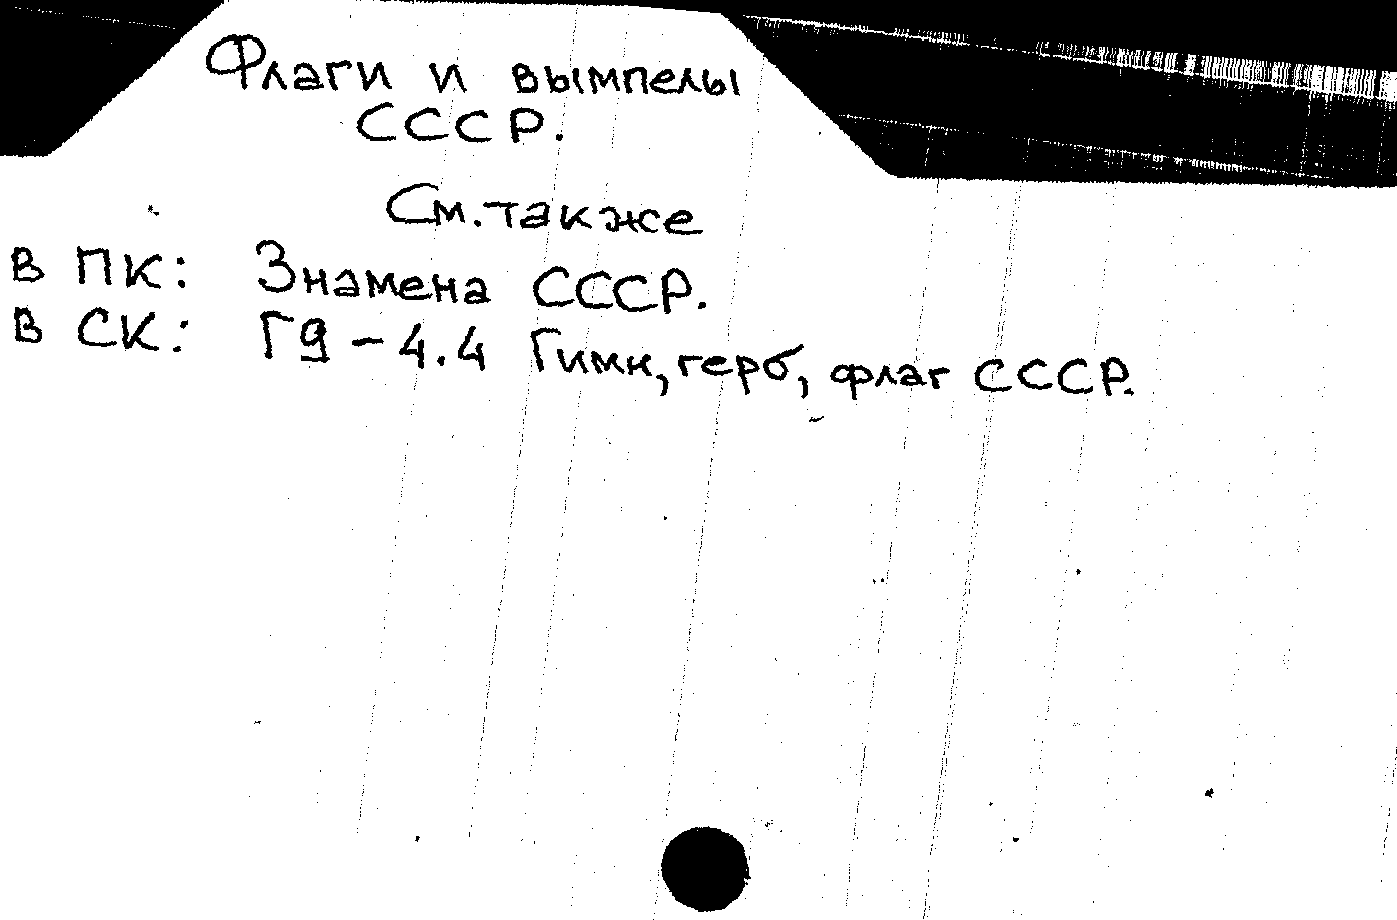 Флаги и вымпелы
СССР.
См. также
в ПК: Знамена СССР.
в СК: Г9-4.4 Гимн, герб, флаг СССР.